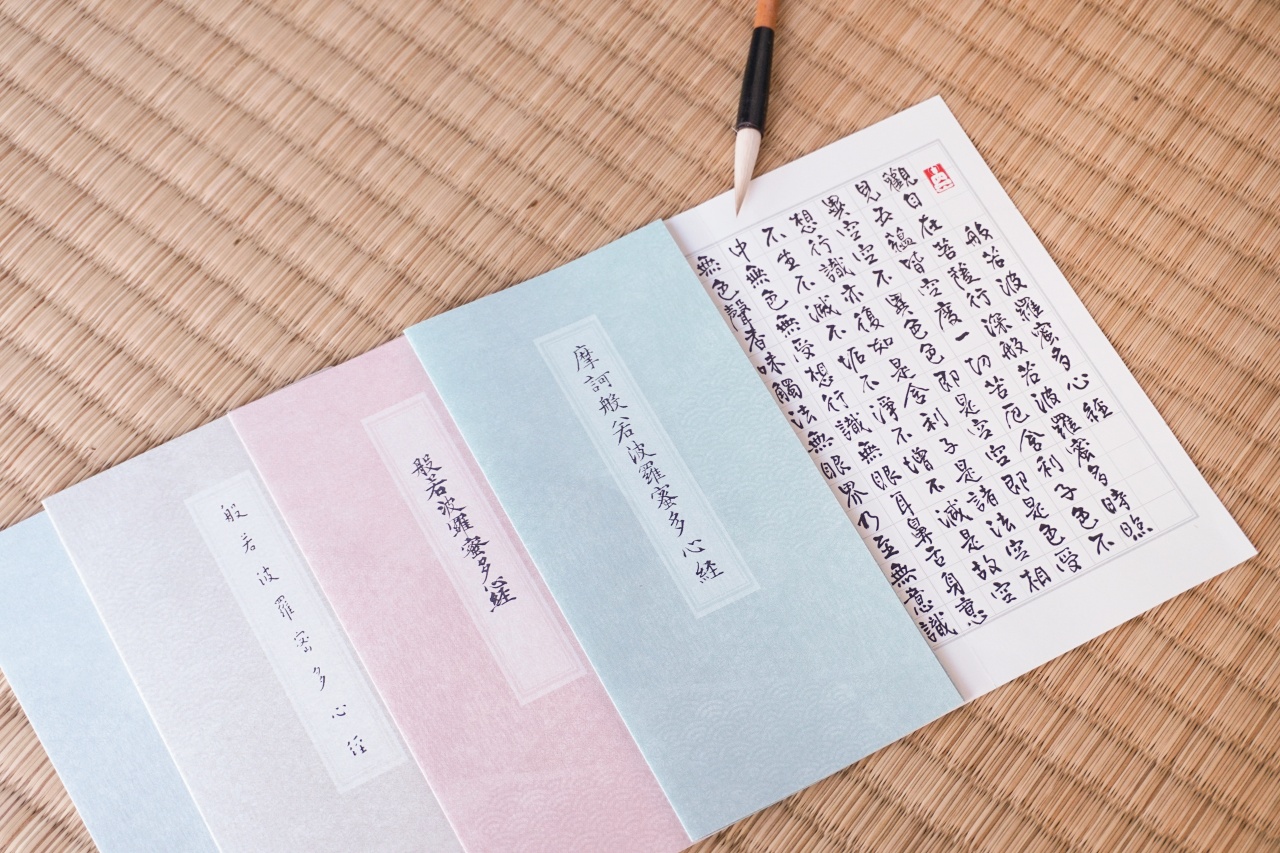 般若波羅蜜多心經
觀自在菩薩行深般若波羅蜜多時照
見五蘊皆空度一切苦厄舍利子色不
異空空不異色色即是空空即是色受
想行識亦復如是舍利子是諸法空相
不生不滅不垢不淨不增不減是故空
中無色無受想行識無眼耳鼻舌身意
無色聲香味觸法無眼界乃至無意識
摩訶般若波羅蜜多心経
般若波羅蜜多心経
般若波羅密多心経